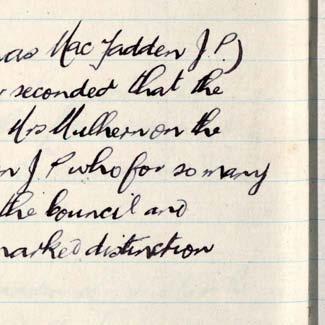 was Mac Fadden J.P.)
seconded that the
Mrs Mulhern on the
n J P who for so many
the Council and
marked distinction